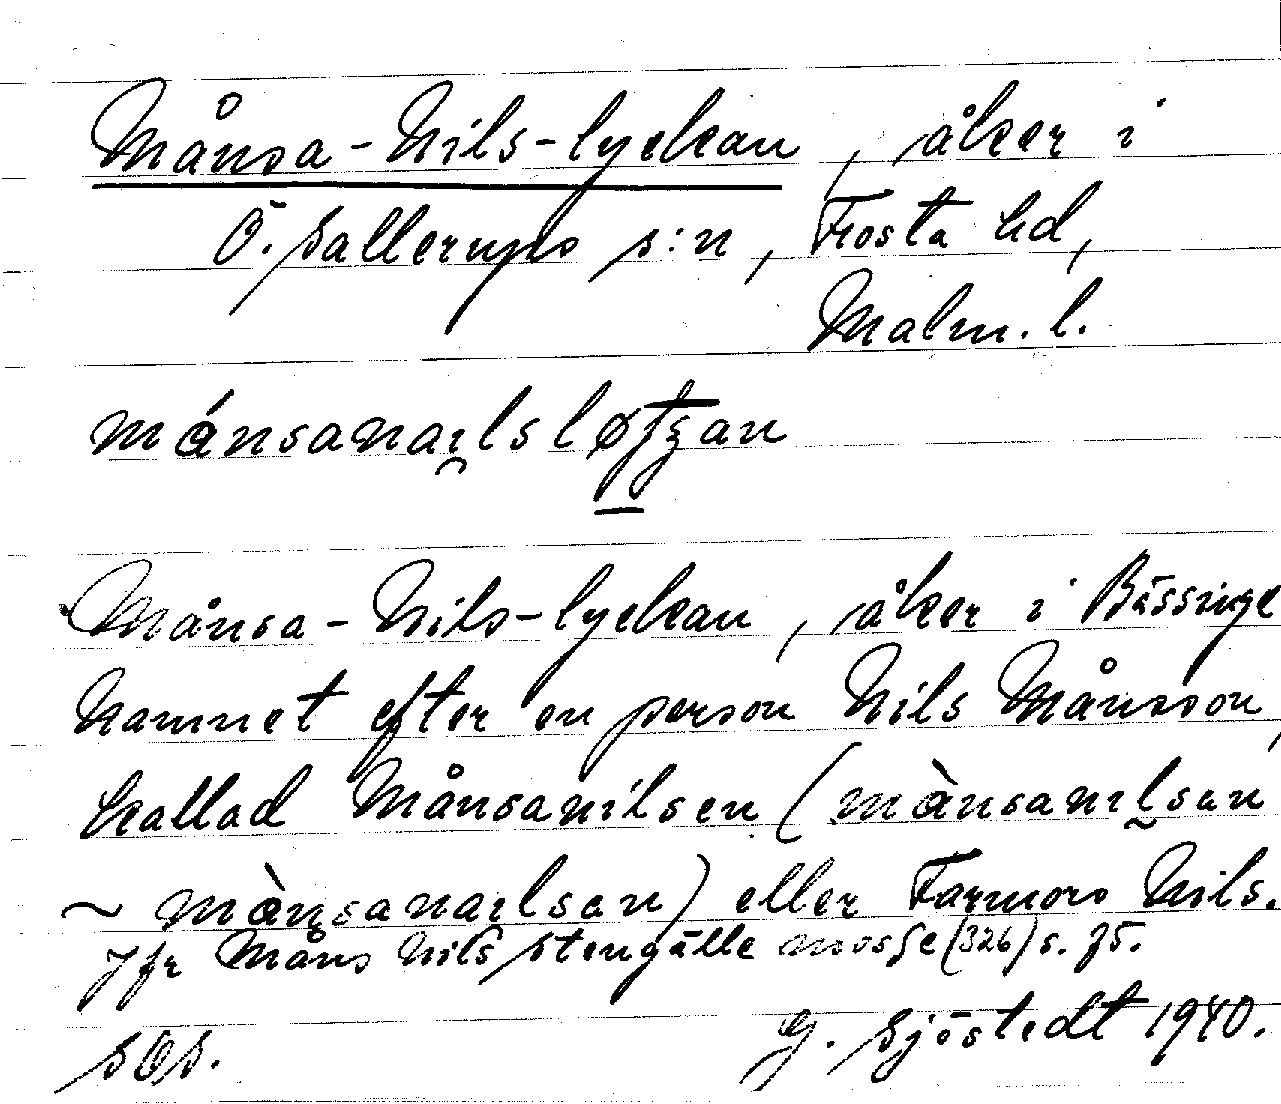 Månsa-Nils-lyckan, åker i
Ö. Sallerups s:n, Frosta hd,
Malm. l.
Månsa-Nils-lyckan, åker i Bässinge
Namnet efter en person Nils Månsson,
kallad Månsanilsen (mànsanɪlsən
~ mànsanaɪlsən) eller Farmors Nils.
Jfr Måns Nils stengälle mosse (326) s. 75.
G. Sjöstedt 1940.
SOS.